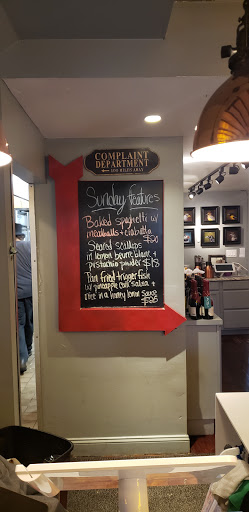 COMPLAINT
DEPARTMENT
Sunday features
Baked spaghetti w/
meatballs + ciabatta
$20
Seared scallops
in lemon beurre blanc +
pistachio powder $18
Pan fried trigger fish
w/ pineapple corn salsa +
rice in a honey lemon sauce
$26